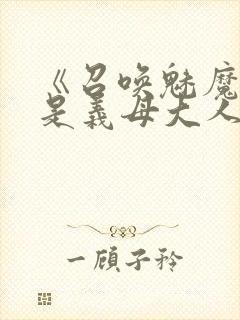 《召唤魅魔
是義母大人
一顾子衿